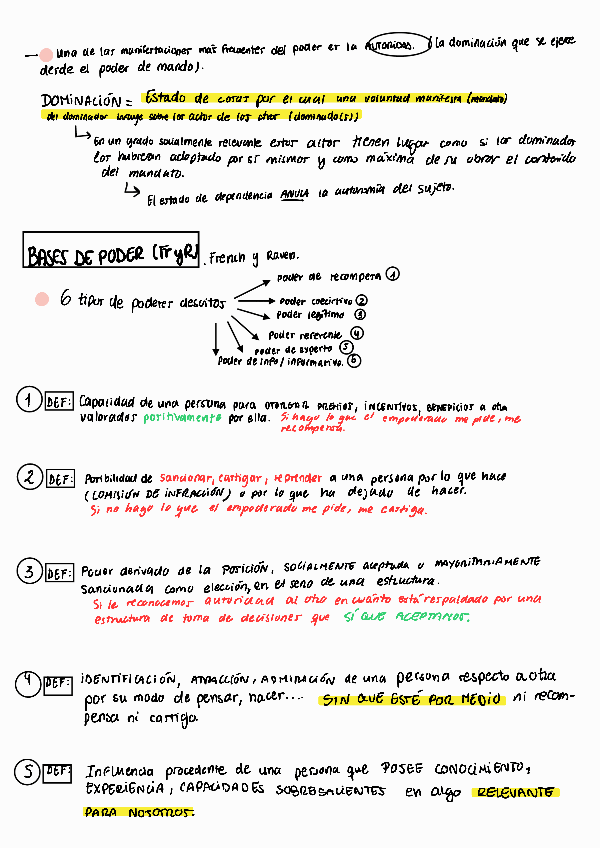 Una de las manifestaciones más frecuentes del poder es la AUTORIDAD. (la dominación que se ejerce
desde el poder de mando).
DOMINACIÓN = Estado de cosas por el cual una voluntad manifiesta (mandato)
del dominador influye sobre los actos de los otros (dominado(s))
En un grado socialmente relevante estos actos tienen lugar como si los dominados
los hubieran adoptado por sí mismos y como máxima de su obrar el contenido
del mandato.
El estado de dependencia ANULA la autonomía del sujeto.
BASES DE PODER (Fr y R). French y Raven.
6 tipos de poderes descritos
poder de recompensa 1
Poder coercitivo 2
Poder legítimo 3
Poder referente 4
Poder de experto 5
Poder de info / informativo. 6
1 DEF: Capacidad de una persona para OTORGAR PREMIOS, INCENTIVOS, BENEFICIOS a otra
valorados positivamente por ella. Si hago lo que el empoderado me pide, me
recompensa.
2 DEF: Posibilidad de sancionar, castigar, reprender a una persona por lo que hace
(COMISIÓN DE INFRACCIÓN) o por lo que ha dejado de hacer.
Si no hago lo que el empoderado me pide, me castiga.
3 DEF: Poder derivado de la POSICIÓN, SOCIALMENTE aceptada o MAYORITARIAMENTE
Sancionada como elección, en el seno de una estructura.
Si le reconocemos autoridad al otro en cuánto está respaldado por una
estructura de toma de decisiones que SÍ QUE ACEPTAMOS.
4 DEF: IDENTIFICACIÓN, ATRACCIÓN, ADMIRACIÓN de una persona respecto a otra
por su modo de pensar, hacer... SIN QUE ESTÉ POR MEDIO ni recom-
pensa ni castigo.
5 DEF: Influencia procedente de una persona que POSEE CONOCIMIENTO,
EXPERIENCIA, CAPACIDADES SOBRESALIENTES en algo RELEVANTE
PARA NOSOTROS.